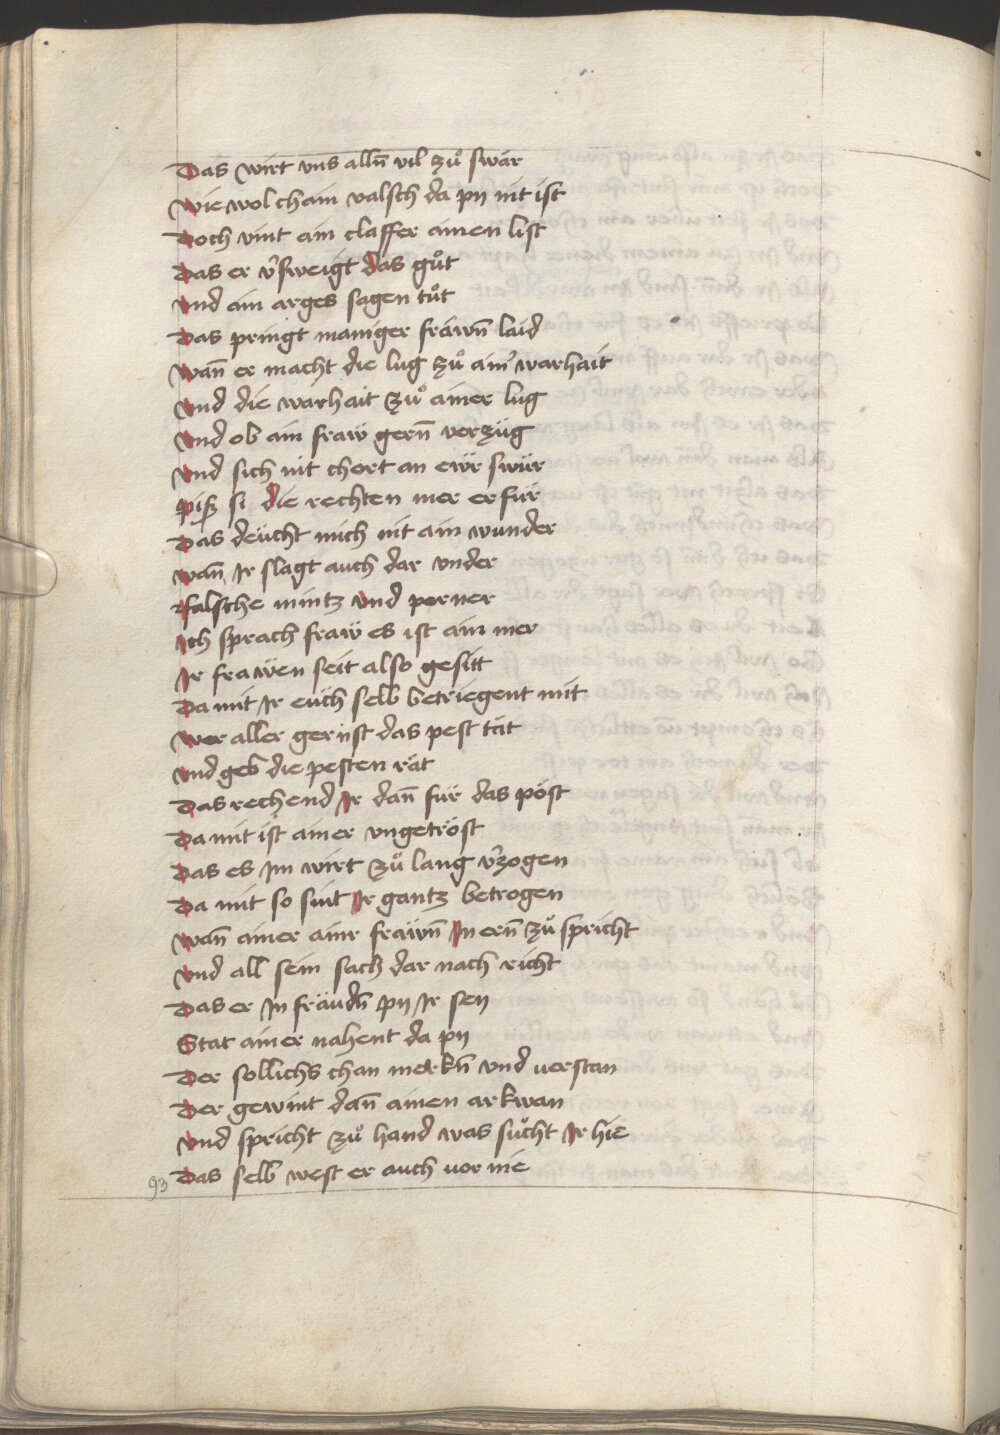 Das wirt vns alln̄ vil zuͦ swär
Wie wol chain valsch da pÿ nit ist
Doch vint ain claffer ainen list
Das er v̾sweigt das guͦt
Vnd ain arges sagen tuͦt
Das pringt maniger fräwn̄ laid
Wan̄ er macht die lug zuͦ ain̾ warhait
Vnd die warhait zuͦ ainer lug
Vnd ob ain fraẅ gern̄ verzüg
Vnd sich nit chort an eẅr swür
Piß si die rechten mer erfür
Das deücht mich nit ain wunder
Wan̄ Ir slagt auch dar vnder
Falsche mintz vnd perner
Ich sprach fraẅ es ist ain mer
Ir fraẅen seit also gesitt
Da mit Ir eüch selb betriegent mit
Wer aller gernst das pest tät
Vnd geb die pesten rät
Das rechend Ir dan̄ für das pöst
Da mit ist ainer vngetröst
Das es Im wirt zuͦ lang v̾zogen
Da mit so sint Ir gantz betrogen
Wan̄ ainer ainr fräwn̄ In ern̄ zuͦ spricht
Vnd all sein sach dar nach richt
Das er In fräudn̄ pÿ Ir seÿ
Stat ainer nahent da pÿ
Der sollichs chan merkn̄ vnd verstan
Der gewint dan̄ ainen arkwan
Vnd spricht zuͦ hand was suͦcht Ir hie
Das selb west er auch vor nie
93